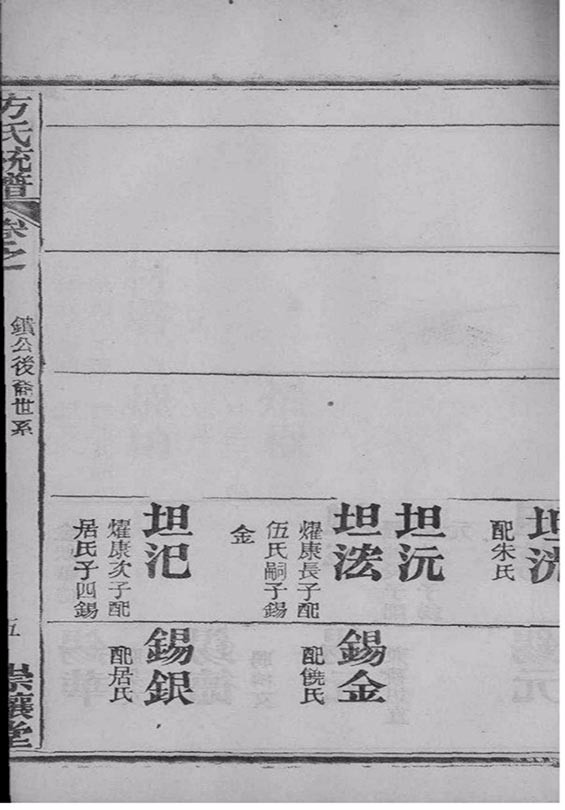 坦洸
配朱氏
坦沅
坦法
燿康長子配
伍氏嗣子錫
金
坦汜
燿康次子配
居氏子四錫
錫金
配饒氏
錫銀
配居氏
方氏統譜
卷之
鑌公後裔世系
五
崇讓堂